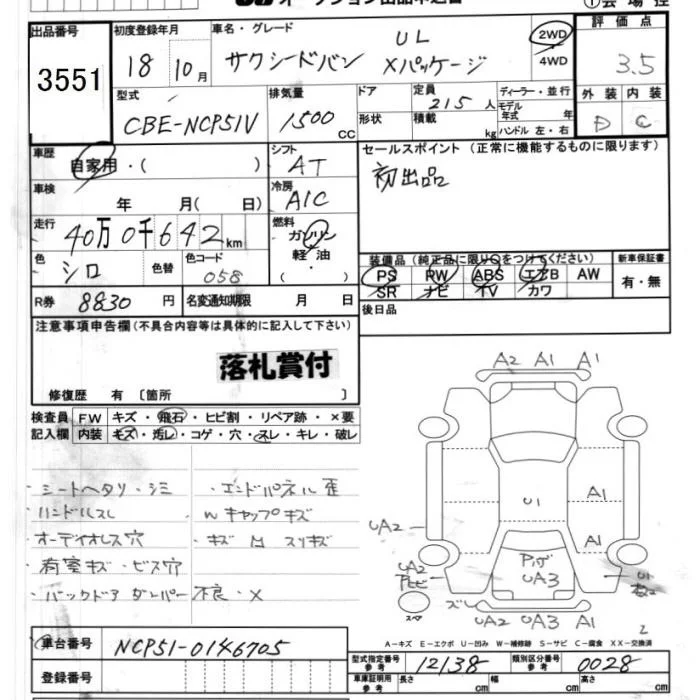 出品番号 3551
初度登録年月 18 10月
車名・グレード UL
サクシードバン Xパッケージ
2WD
4WD
評価点 3.5
外装 内装
D C
型式 CBE-NCP51V
排気量 1500 CC
ドア 形状
定員 2/5 人
積載 kg
ディーラー・並行
モデル年式 年
ハンドル 左・右
車歴 自家用・( )
シフト AT
セールスポイント(正常に機能するものに限ります)
初出品
車検 年 月( 日)
冷房 A/C
走行 40万0千642km
燃料 ガソリン
軽・油
( ・ )
色 シロ 色替
色コード 058
装備品(純正品に限り○をつけてください)
新車保証書
PS PW ABS エアB AW
SR ナビ TV カワ
有・無
R券 8830 円
名変通知期限 月 日
後日品
注意事項申告欄(不具合内容等は具体的に記入して下さい)
落札賞付
修復歴 有〔箇所 〕
検査員 FW キズ・飛石・ヒビ割・リペア跡・×要
記入欄 内装 キズ・汚レ・コゲ・穴・スレ・キレ・破レ
・シートヘタリ・シミ
・ハンドルスレ
・オーディオレス穴
・荷室キズ・ビス穴
・バックドア ダンパー不良・X
・エンドパネル歪
Wキャップキズ
・キズ M スリキズ
A2 A1 A1
U1 A1
UA2 A1
UA2
UA3
ズレ
スペア
UA2 UA3 A1
2
A-キズ E-エクボ U-凹み W-補修跡 S-サビ C-腐食 XX-交換済
車台番号 NCP51-0146705
登録番号
型式指定番号 参考 12138
類別区分番号 参考 0028
車庫証明用 参考
長さ cm 幅 cm 高さ cm